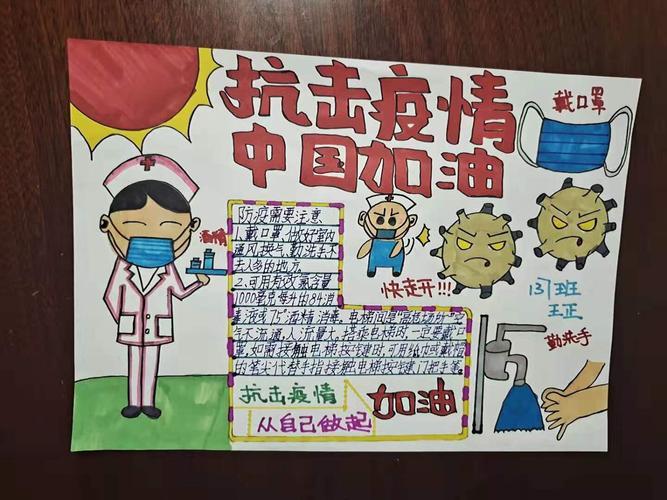 抗击疫情
中国加油
戴口罩
酒精
防疫需要注意
1、戴口罩,做好室内
通风换气,勤洗手不
去人多的地方
2、可用有效氯含量
1000毫克每升的84消
毒液或75°酒精消毒。电梯间是"密闭场所"空
气不流通,人流量大,搭乘电梯时一定要戴口
罩,如需接触电梯按键时,可用纸巾或戴帽
的笔尖代替手指接触电梯按键
快走开!!!
137班
王正
勤洗手
抗击疫情
加油
从自己做起